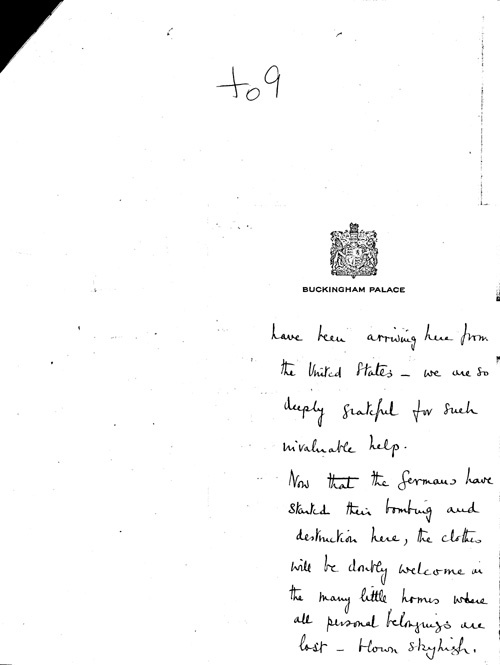 to9
BUCKINGHAM PALACE
have been arriving here from
the United States – we are so
deeply grateful for such
invaluable help.
Now that the Germans have
started their bombing and
destruction here, the clothes
will be doubly welcome in
the many little homes where
all personal belongings are
lost – blown skyhigh.